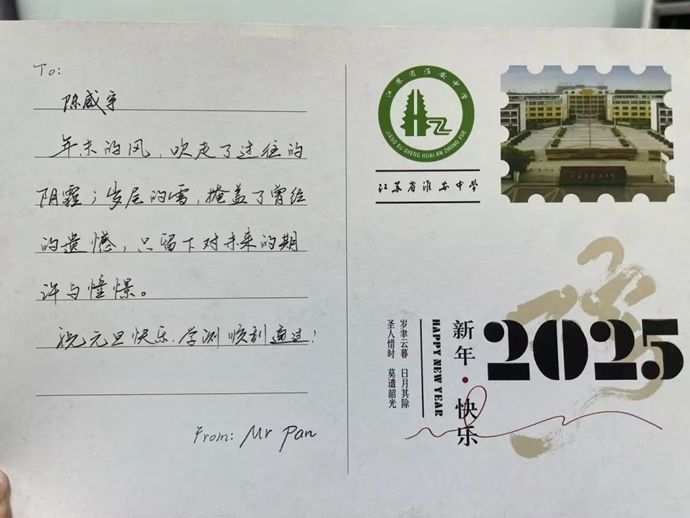 To:
陈威宇
年末的风，吹走了过往的
阴霾；岁尾的雪，掩盖了曾经
的遗憾，只留下对未来的期
许与憧憬。
祝元旦快乐，学测顺利通过！
From: Mr Pan
江苏省淮安中学
JIANG SU SHENG HUAI AN ZHONG XUE
江苏省淮安中学
岁聿云暮 日月其除
圣人惜时 莫遣韶光
HAPPY NEW YEAR
新年·快乐
2025